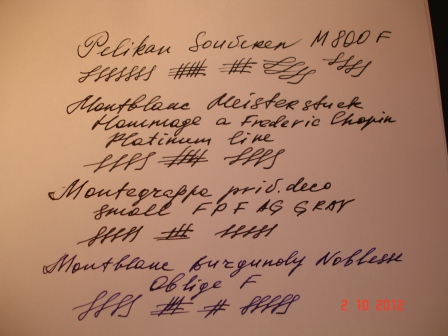 Pelikan Souveren M800 F
Montblanc Meisterstuck
Hommage a Frederic Chopin
Platinum line
Montegrappa priv. deco
small F P F AG GRAV
Montblanc burgundy Noblesse
Oblige F
2 10 2012